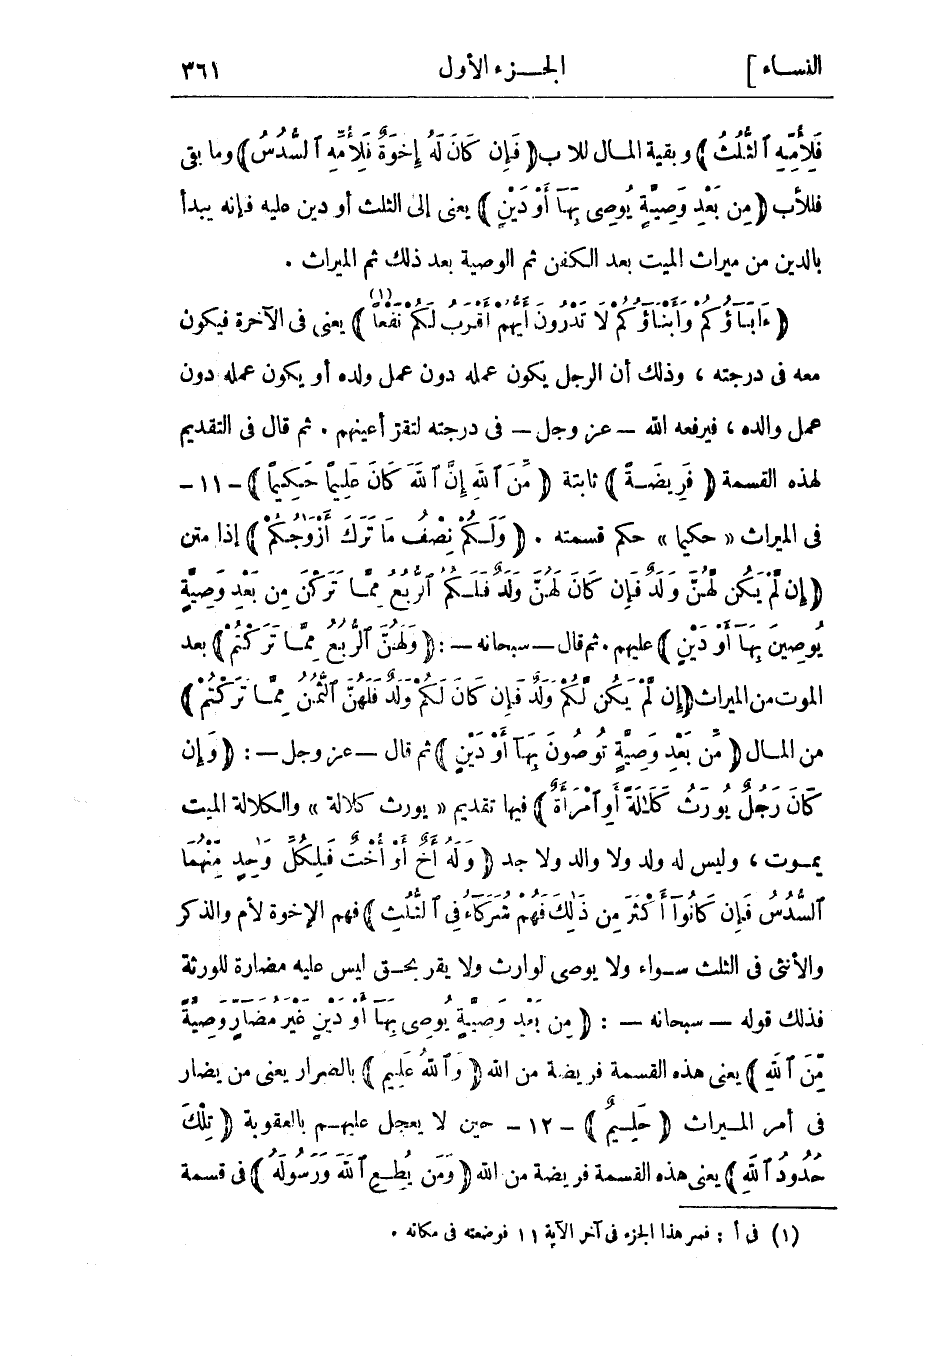 النساء ] الجزء الأول ٣٦١
فَلِأُمِّهِ ٱلثُّلُثُ ﴾ وبقية المال للاب ﴿ فَإِن كَانَ لَهُ إِخْوَةٌ فَلِأُمِّهِ ٱلسُّدُسُ ﴾ وما بقى
فللأب ﴿ مِن بَعْدِ وَصِيَّةٍ يُوصِى بِهَآ أَوْ دَيْنٍ ﴾ يعنى إلى الثلث أو دين عليه فإنه يبدأ
بالدين من ميراث الميت بعد الكفن ثم الوصية بعد ذلك ثم الميراث .
﴿ ءَابَآؤُكُمْ وَأَبْنَآؤُكُمْ لَا تَدْرُونَ أَيُّهُمْ أَقْرَبُ لَكُمْ نَفْعًا (١) ﴾ يعنى فى الآخرة فيكون
معه فى درجته ، وذلك أن الرجل يكون عمله دون عمل ولده أو يكون عمله دون
عمل والده ، فيرفعه الله — عز وجل — فى درجته لتقرّ أعينهم . ثم قال فى التقديم
لهذه القسمة ﴿ فَرِيضَـةً ﴾ ثابتة ﴿ مِّنَ ٱللَّهِ إِنَّ ٱللَّهَ كَانَ عَلِيمًا حَكِيمًا ﴾ - ١١ -
فى الميراث « حكيما » حكم قسمته . ﴿ وَلَـكُمْ نِصْفُ مَا تَرَكَ أَزْوَٰجُكُمْ ﴾ إذا متن
﴿ إِن لَّمْ يَكُن لَّهُنَّ وَلَدٌ فَإِن كَانَ لَهُنَّ وَلَدٌ فَلَـكُمُ ٱلرُّبُعُ مِمَّا تَرَكْنَ مِن بَعْدِ وَصِيَّةٍ
يُوصِينَ بِهَآ أَوْ دَيْنٍ ﴾ عليهم . ثم قال — سبحانه — : ﴿ وَلَهُنَّ ٱلرُّبُعُ مِمَّا تَرَكْتُمْ ﴾ بعد
الموت من الميراث ﴿ إِن لَّمْ يَكُن لَّكُمْ وَلَدٌ فَإِن كَانَ لَكُمْ وَلَدٌ فَلَهُنَّ ٱلثُّمُنُ مِمَّا تَرَكْتُم ﴾
من المال ﴿ مِّن بَعْدِ وَصِيَّةٍ تُوصُونَ بِهَآ أَوْ دَيْنٍ ﴾ ثم قال — عز وجل — : ﴿ وَإِن
كَانَ رَجُلٌ يُورَثُ كَلَٰلَةً أَوِ ٱمْرَأَةٌ ﴾ فيها تقديم « يورث كلالة » والكلالة الميت
يموت ، وليس له ولد ولا والد ولا جد ﴿ وَلَهُ أَخٌ أَوْ أُخْتٌ فَلِكُلِّ وَٰحِدٍ مِّنْهُمَا
ٱلسُّدُسُ فَإِن كَانُوٓا أَكْثَرَ مِن ذَٰلِكَ فَهُمْ شُرَكَآءُ فِى ٱلثُّلُثِ ﴾ فهم الإخوة لأم والذكر
والأنثى فى الثلث سـواء ولا يوصى لوارث ولا يقر بحـق ليس عليه مضارة للورثة
فذلك قوله — سبحانه — : ﴿ مِن بَعْدِ وَصِيَّةٍ يُوصَى بِهَآ أَوْ دَيْنٍ غَيْرَ مُضَآرٍّ وَصِيَّةً
مِّنَ ٱللَّهِ ﴾ يعنى هذه القسمة فريضة من الله ﴿ وَٱللَّهُ عَلِيمٌ ﴾ بالضرار يعنى من يضار
فى أمر الميراث ﴿ حَلِيمٌ ﴾ - ١٢ - حين لا يعجل عليهم بالعقوبة ﴿ تِلْكَ
حُدُودُ ٱللَّهِ ﴾ يعنى هذه القسمة فريضة من الله ﴿ وَمَن يُطِـعِ ٱللَّهَ وَرَسُولَهُ ﴾ فى قسمة
(١) فى أ : فسر هذا الجزء فى آخر الآية ١١ فوضعته فى مكانه .